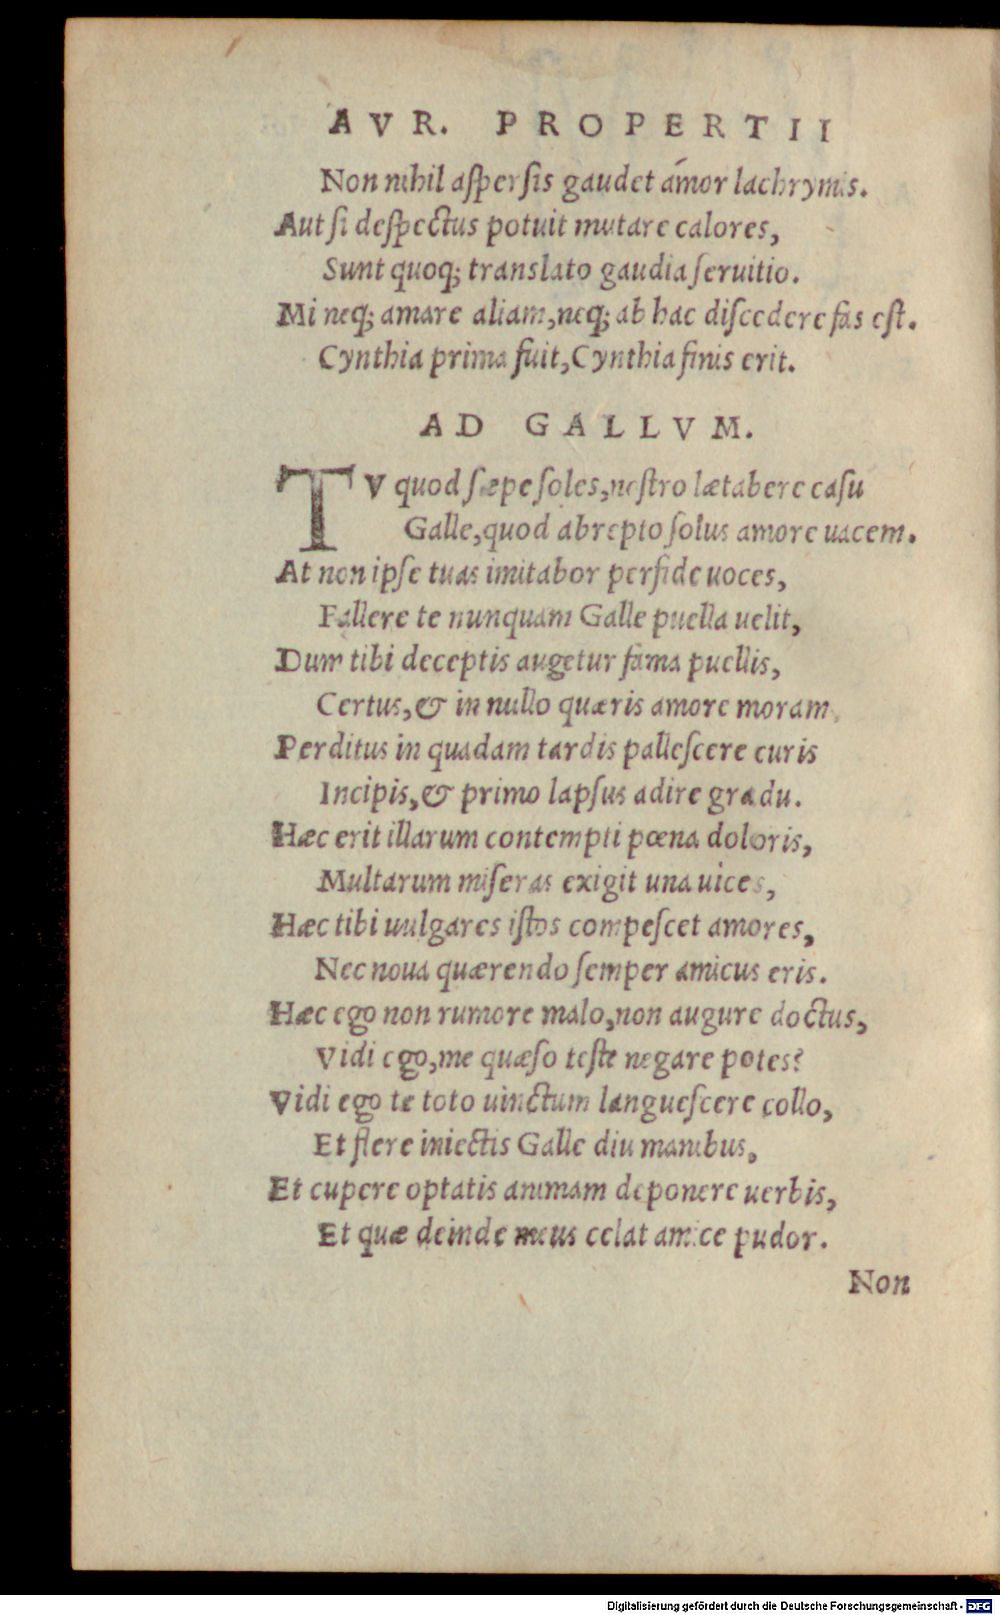 AVR. PROPERTII
Non nihil aſperſis gaudet ámor lachrymis.
Aut ſi deſpectus potuit mutare calores,
Sunt quoq; translato gaudia ſeruitio.
Mi neq; amare aliam, neq; ab hac diſcedere fas eſt.
Cynthia prima fuit, Cynthia finis erit.
AD GALLVM.
TV quod ſæpe ſoles, noſtro lætabere caſu
Galle, quod abrepto ſolus amore uacem.
At non ipſe tuas imitabor perfide uoces,
Fallere te nunquam Galle puella uelit,
Dum tibi deceptis augetur fama puellis,
Certus, & in nullo quæris amore moram,
Perditus in quadam tardis palleſcere curis
Incipis, & primo lapſus adire gradu.
Hæc erit illarum contempti pœna doloris,
Multarum miſeras exigit una uices,
Hæc tibi uulgares iſtos compeſcet amores,
Nec noua quærendo ſemper amicus eris.
Hæc ego non rumore malo, non augure doctus,
Vidi ego, me quæſo teſte negare potes?
Vidi ego te toto uinctum langueſcere collo,
Et flere iniectis Galle diu manibus,
Et cupere optatis animam deponere uerbis,
Et quæ deinde meus celat amice pudor.
Non
Digitalisierung gefördert durch die Deutsche Forschungsgemeinschaft - DFG